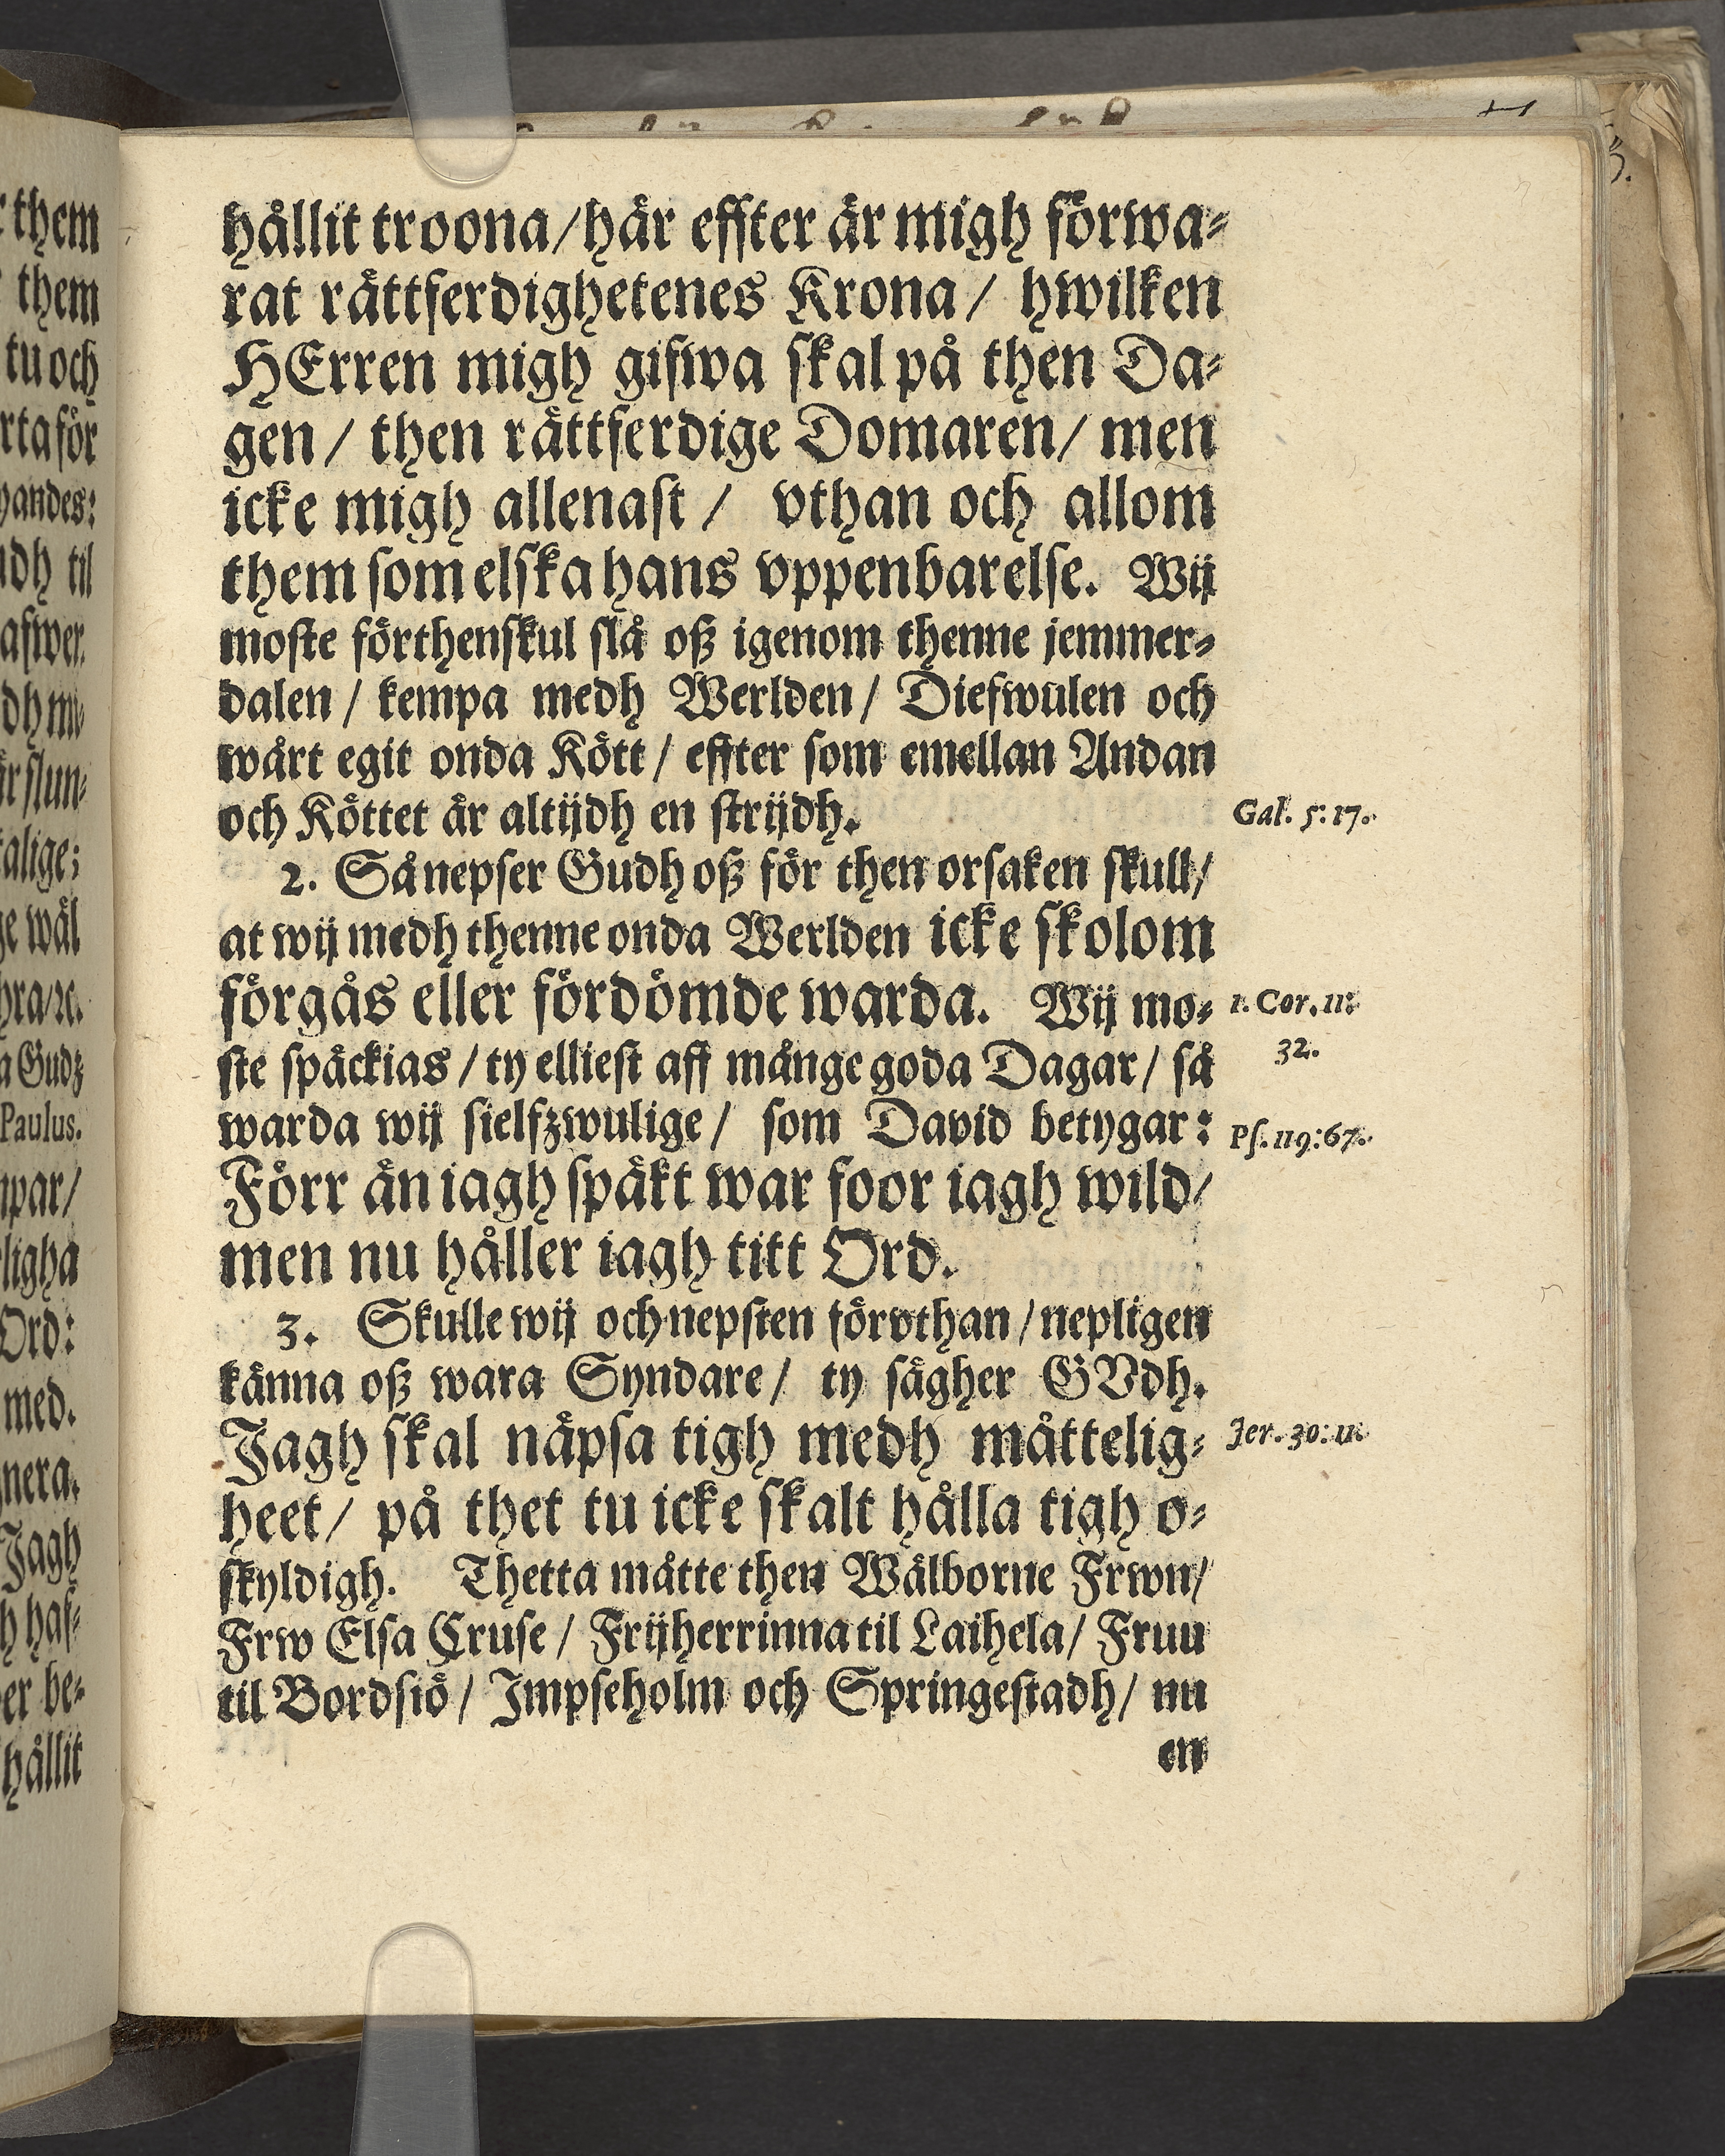 hållit troona/här effter är migh förwa⸗
rat rättferdighetenes Krona/ hwilken
HErren migh gifwa skal på then Da⸗
gen/ then rättferdige Domaren/ men
icke migh allenast/ vthan och allom
them som elska hans vppenbarelse. Wij
moste förthenskul slå oß igenom thenne jemmer⸗
dalen/ kempa medh Werlden/ Diefwulen och
wårt egit onda Kött/ effter som emellan Andan
och Köttet är altijdh en strijdh.
Gal. 5:17.
2. Så nepser Gudh oß för then orsaken skull/
at wij medh thenne onda Werlden icke skolom
förgås eller fördömde warda. Wij mo⸗
1. Cor. 11:
32.
ste späckias/ ty elliest aff månge goda Dagar/ så
warda wij sielfzwulige/ som David betygar:
Ps. 119:67.
Förr än iagh späkt war foor iagh wild/
men nu håller iagh titt Ord.
3. Skulle wij och nepsten förvthan/ nepligen
känna oß wara Syndare/ ty sägher GVdh.
Jagh skal näpsa tigh medh måttelig⸗
Jer. 30:11.
heet/ på thet tu icke skalt hålla tigh o⸗
skyldigh. Thetta måtte then Wälborne Frwn/
Frw Elsa Cruse/ Frijherrinna til Laihela/ Fruu
til Bordsiö/ Impseholm och Springestadh/ nu
en